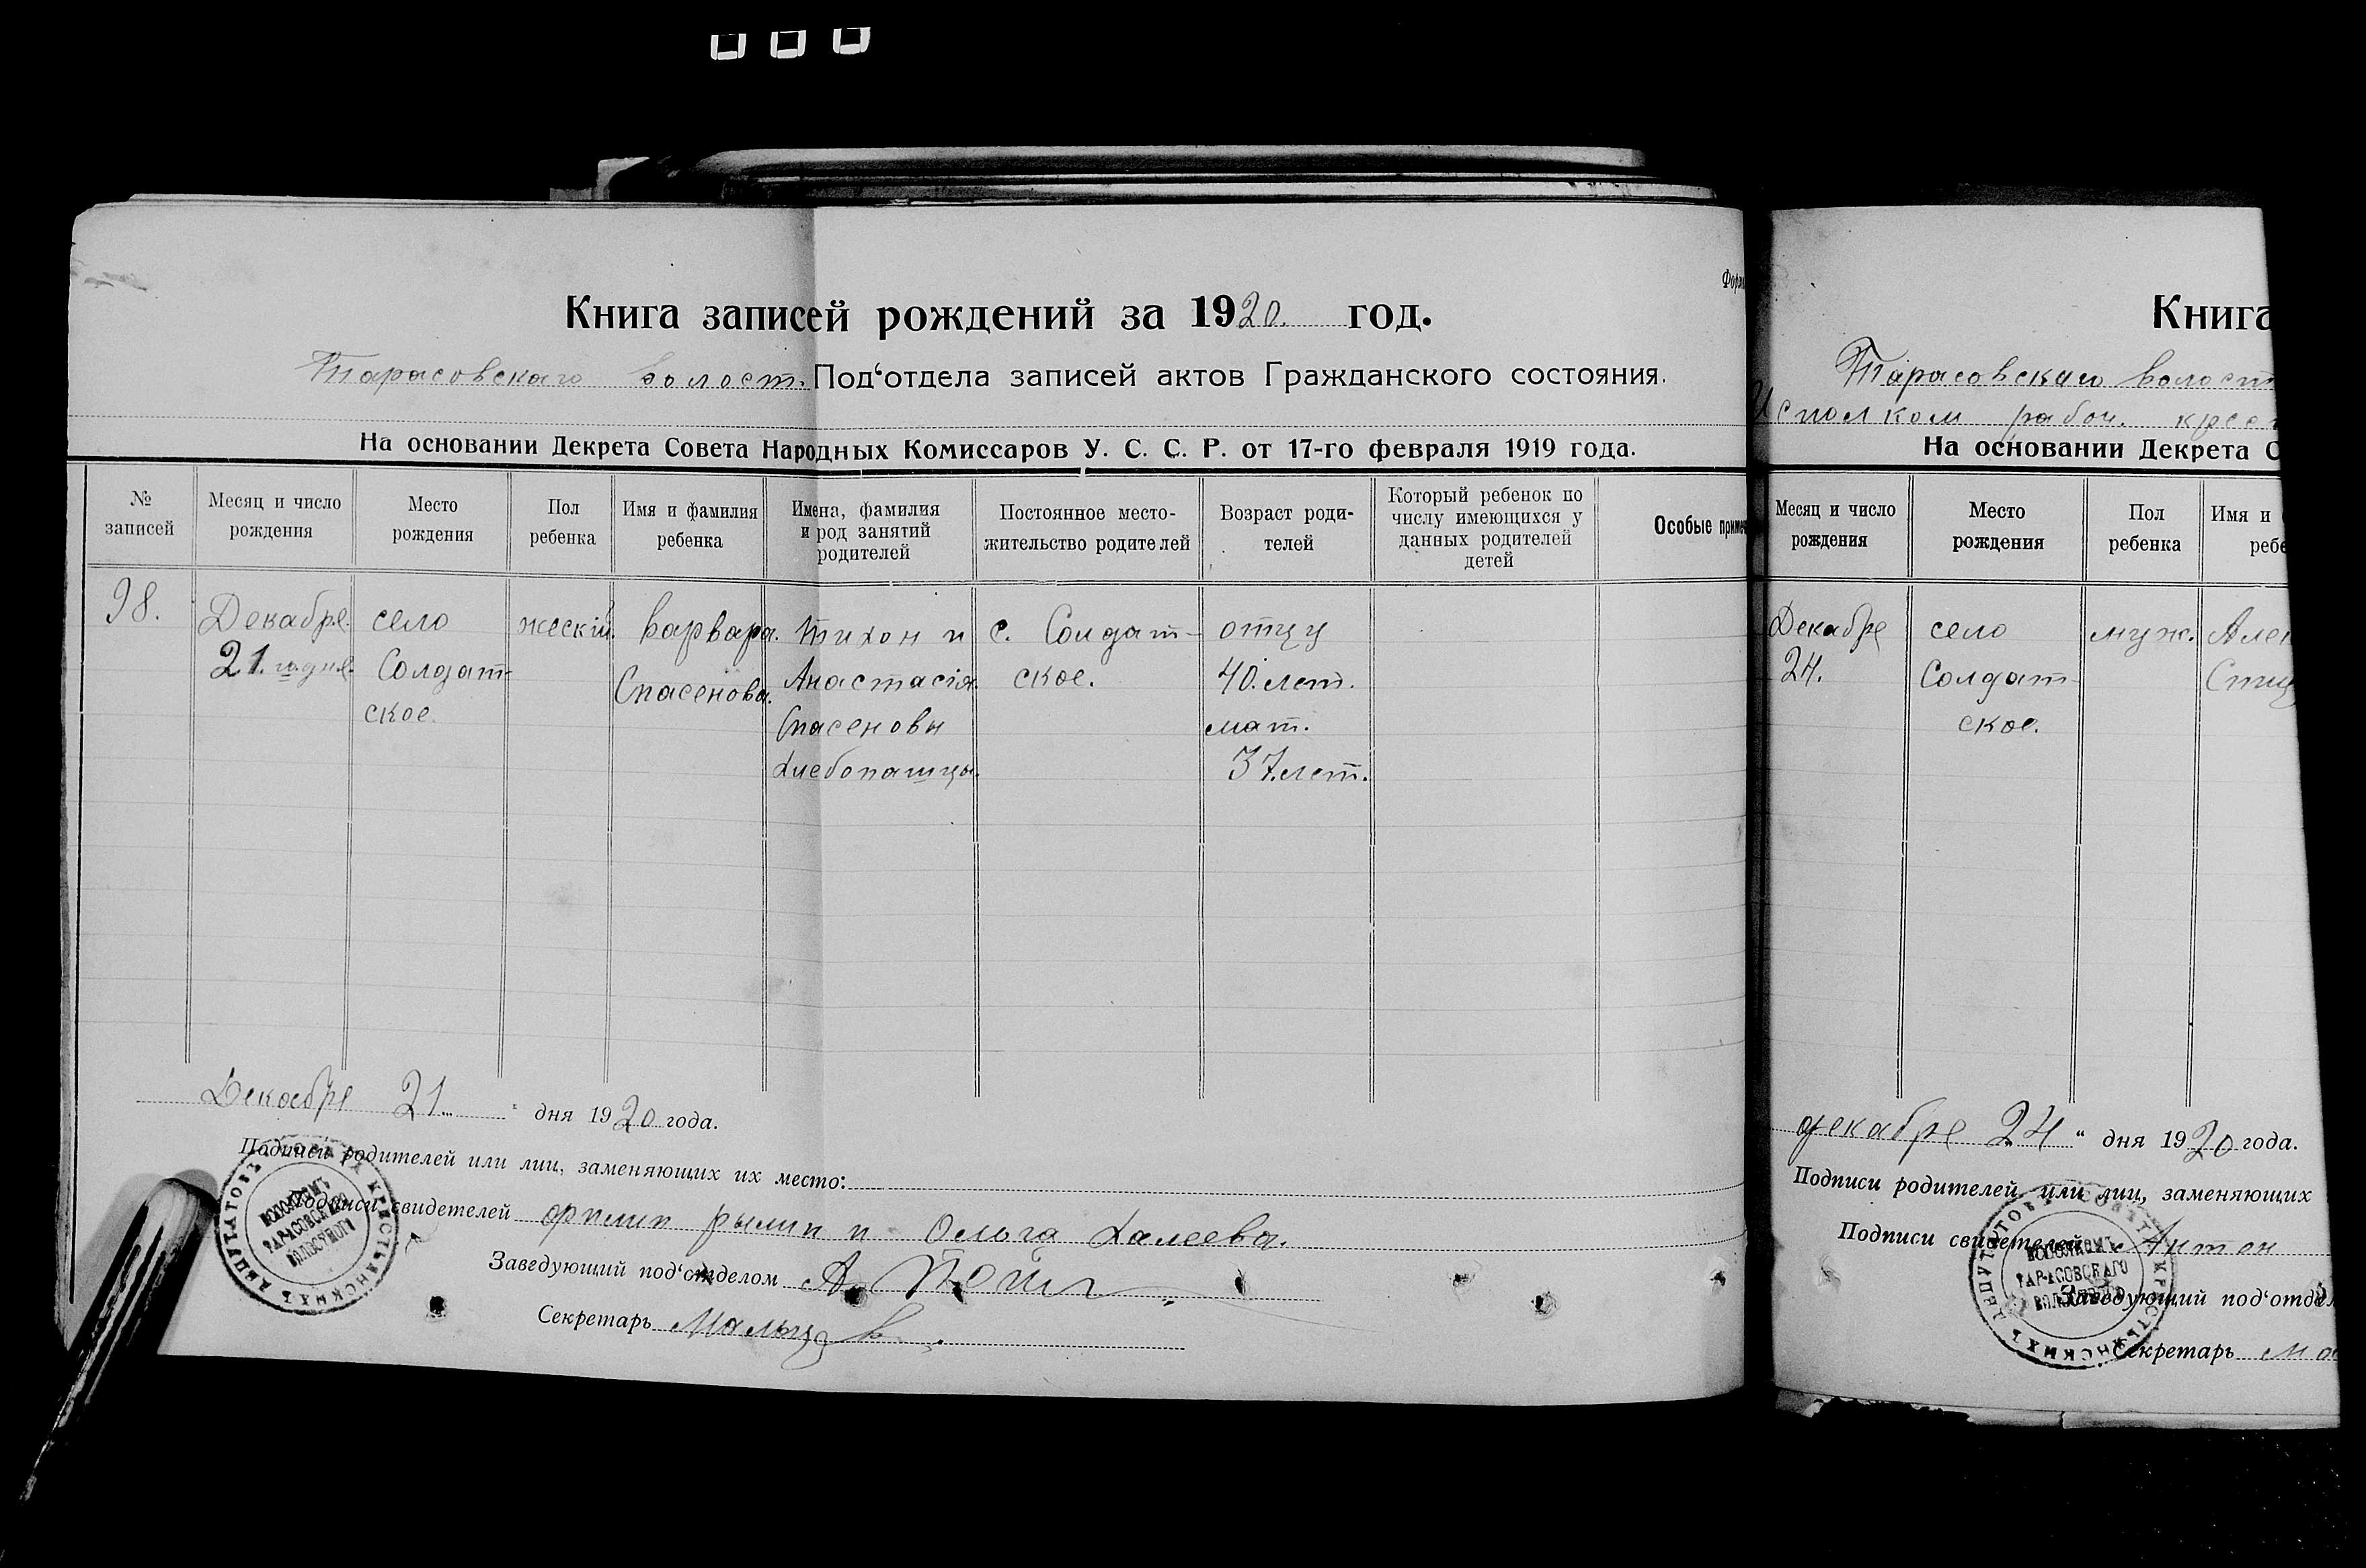 Книга записей рождений за 1920. год.
Тарасовскаго волост. Под‘отдела записей актов Гражданского состояния.
На основании Декрета Совета Народных Комиссаров У. С. С. Р. от 17-го февраля 1919 года.
№ записей
Месяц и число рождения
Место рождения
Пол ребенка
Имя и фамилия ребенка
Имена, фамилия и род занятий родителей
Постоянное место-жительство родителей
Возраст роди-телей
Который ребенок по числу имеющихся у данных родителей детей
Особые приме
98.
Декабре.
21. го дня.
село
Солдат-
ское.
жескій.
Варвара.
Спасенова.
Тихон и
Анастасія.
Спасеновы
Хлебопашцы.
с. Солдат-
ское.
отцу
40. лет.
мат.
37. лет.
Декабре 21 " дня 1920 года.
Подписи родителей или лиц, заменяющих их место:
Подписи свидетелей Ольга Халеева.
Заведующий под‘отделом А.
Секретарь Мальцев.
ИСПОЛКОМЪ
ТАРАСОВСКАГО
ВОЛОСТНОГО
КРЕСТЬЯНСКИХЪ ДЕПУТАТОВЪ
Книга
Тарасовскаго волост
Исполком рабоч. крест
На основании Декрета С
Месяц и число рождения
Место рождения
Пол ребенка
Имя и
ребе
Декабре
24.
село
Солдат-
ское.
муж.
Алек
декабре 24 " дня 1920 года.
Подписи родителей или лиц, заменяющих
Подписи свидетелей Антон
Заведующий под‘отдел
Секретарь Ма
ИСПОЛКОМЪ
ТАРАСОВСКАГО